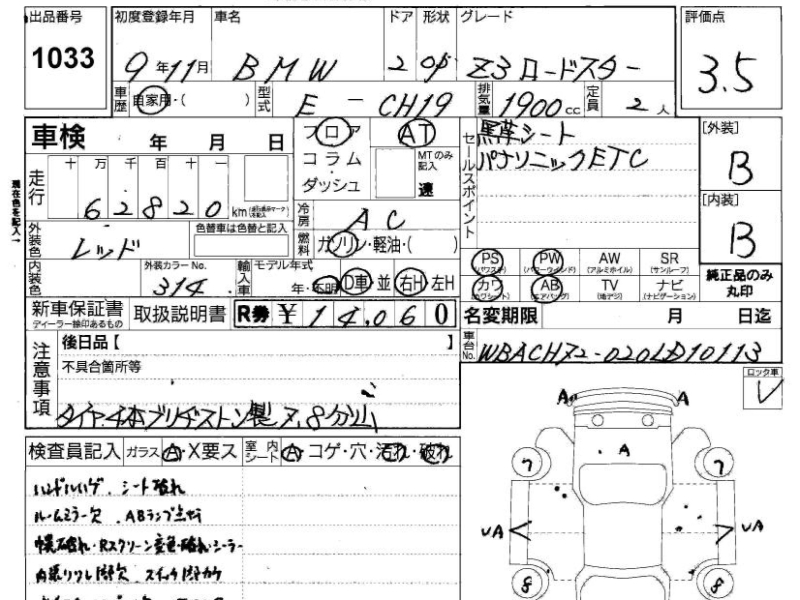 出品番号 初度登録年月 車名 ドア 形状 グレード 評価点
1033 9年11月 BMW 2 OP Z3ロードスター 3.5
車歴 自家用・( ) 型式 E-CH19 排気量 1900cc 定員 2人
車検 年 月 日 フロア AT セールスポイント 黒革シート [外装]
コラム・ MTのみ記入 パナソニックETC B
現在色を記入→ 走行 十 万 千 百 十 一 ダッシュ 速
62820 km 冷房 AC [内装]
外装色 レッド 色替車は色替と記入 燃料 ガソリン・軽油・( ) B
PS (パワステ) PW (パワーウインド) AW (アルミホイル) SR (サンルーフ)
内装色 外装カラーNo. 314 輸入車 モデル年式 年・不明 D車・並 右H・左H カワ (カワシート) AB (エアバッグ) TV (地デジ) ナビ (ナビゲーション) 純正品のみ丸印
新車保証書 ディーラー捺印あるもの 取扱説明書 R券 ¥14,060 名変期限 月 日迄
注意事項 後日品【 】 車台No. WBACH72-020LD10113
不具合箇所等 ロック車
レ
タイヤ4本ブリヂストン製 7.8分山
A A
検査員記入 ガラス A・X要ス 室内シート A・コゲ・穴・汚れ・破れ A
ハンドルハゲ、シート破れ 7 7
ルームミラー欠、ABランプ点灯
幌破れ・Rスクリーン変色・破れ・シーラー UA UA
8 8